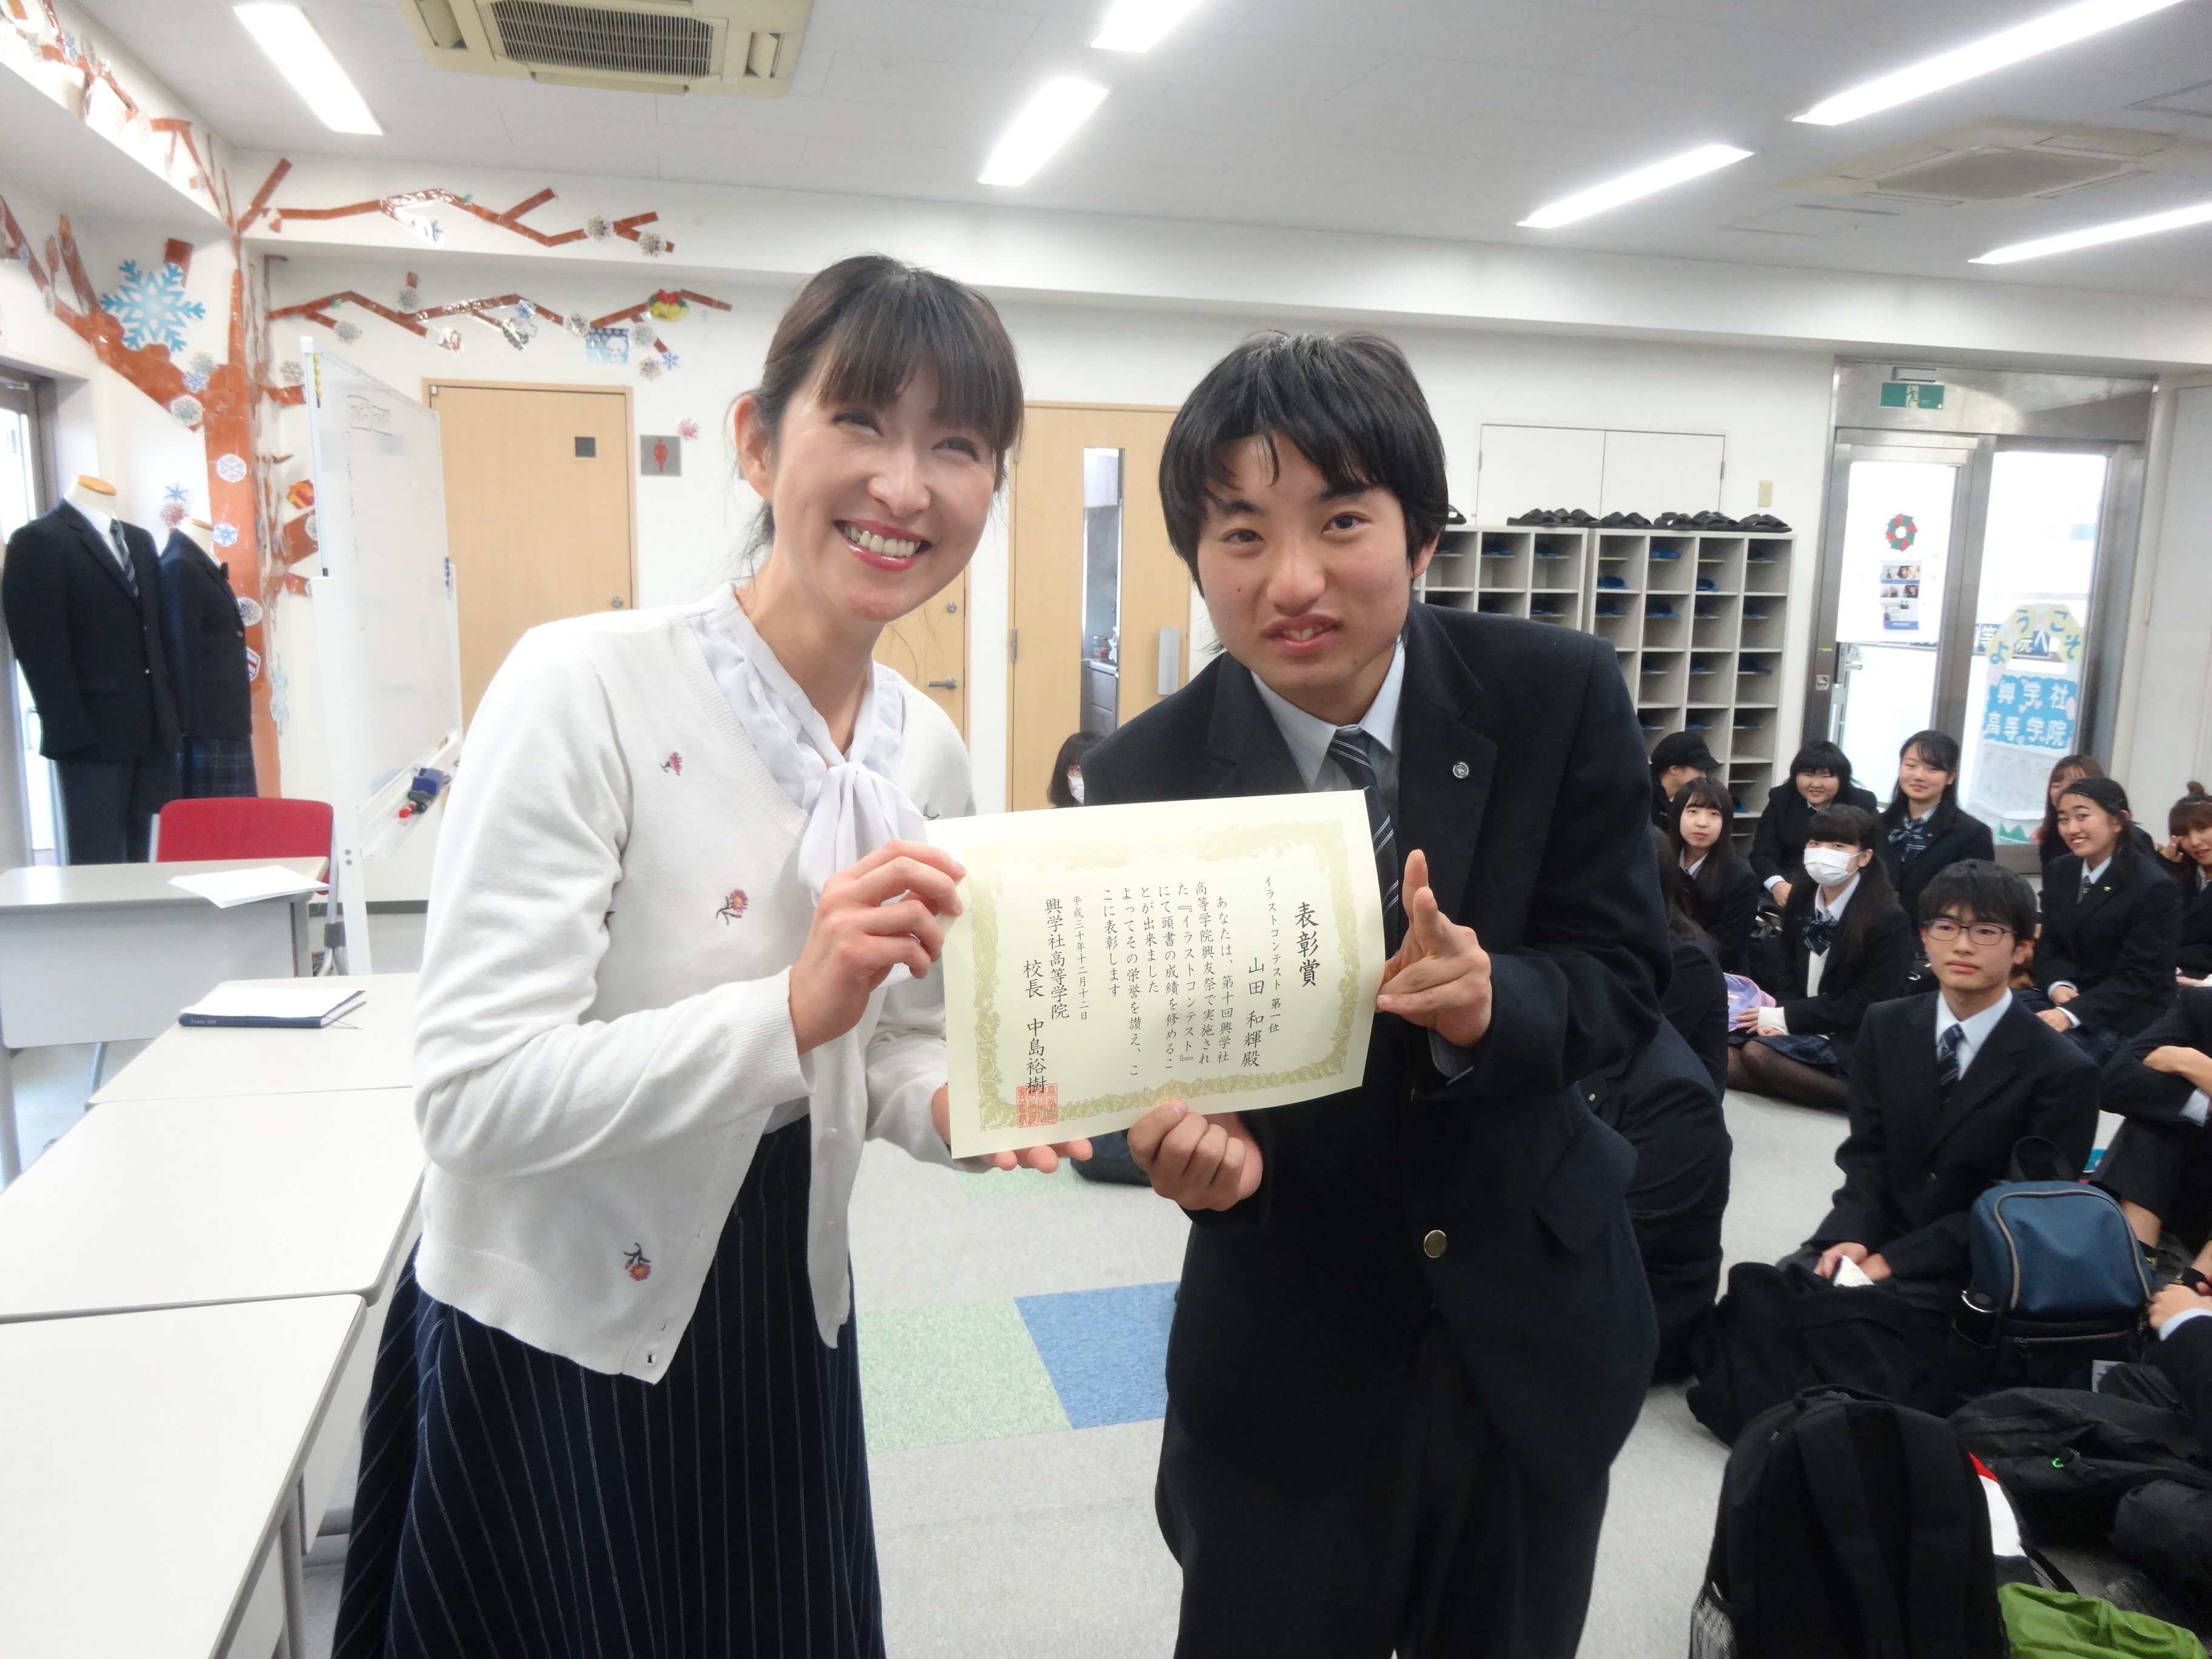 表彰賞
イラストコンテスト 第一位
山田 和輝殿
あなたは、第十回興学社
高等学院興友祭で実施され
た『イラストコンテスト』
にて頭書の成績を修めるこ
とが出来ました
よってその栄誉を讃え、こ
こに表彰します
平成三十年十二月十二日
興学社高等学院
校長 中島裕樹
ようこそ
興学社
高等学院